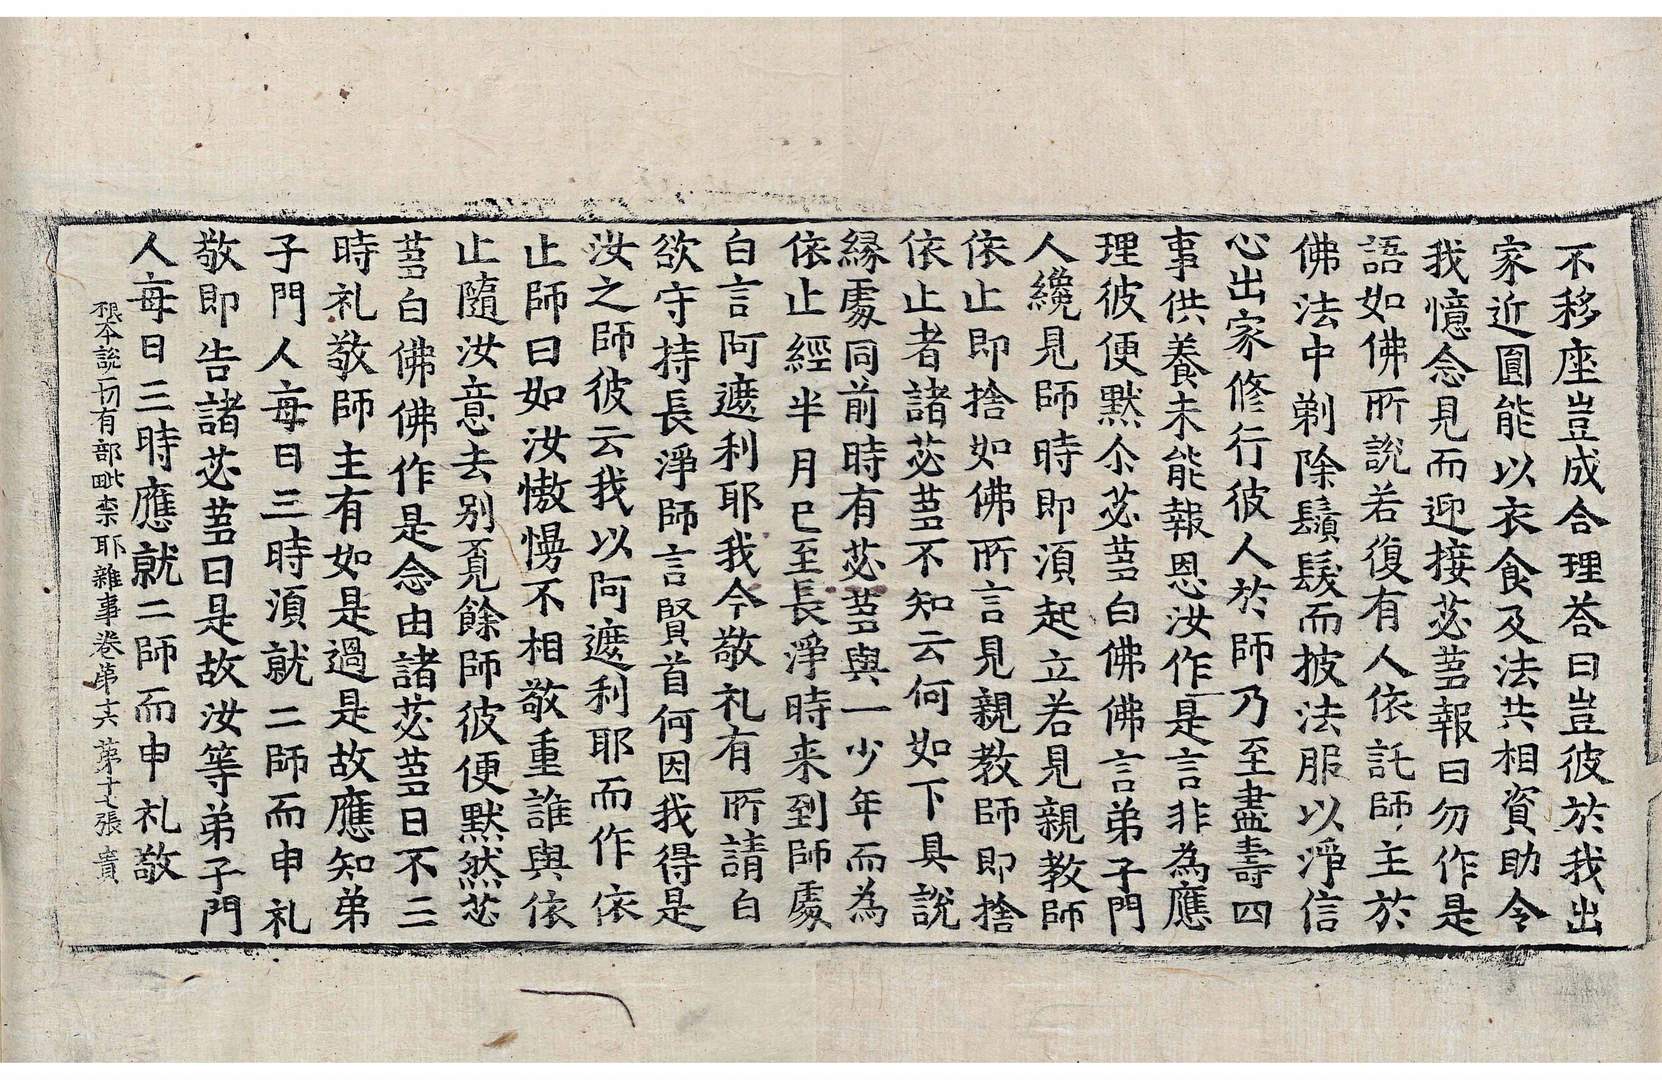 不移座豈成合理荅曰豈彼於我出
家近圓能以衣食及法共相資助令
我憶念見而迎接苾蒭報曰勿作是
語如佛所說若復有人依託師主於
佛法中剃除鬚髮而披法服以淨信
心出家修行彼人於師乃至盡壽四
事供養未能報恩汝作是言非為應
理彼便默尒苾蒭白佛佛言弟子門
人纔見師時即湏起立若見親教師
依止即捨如佛所言見親教師即捨
依止者諸苾蒭不知云何如下具說
緣處同前時有苾蒭與一少年而為
依止經半月已至長淨時来到師處
白言阿遮利耶我今敬礼有所請白
欲守持長淨師言賢首何因我得是
汝之師彼云我以阿遮利耶而作依
止師曰如汝慠慢不相敬重誰與依
止隨汝意去別覓餘師彼便默然苾
蒭白佛佛作是念由諸苾蒭日不三
時礼敬師主有如是過是故應知弟
子門人每日三時湏就二師而申礼
敬即告諸苾蒭曰是故汝等弟子門
人每日三時應就二師而申礼敬
根本說一切有部毗柰耶雜事卷第十六 第十七張 賨